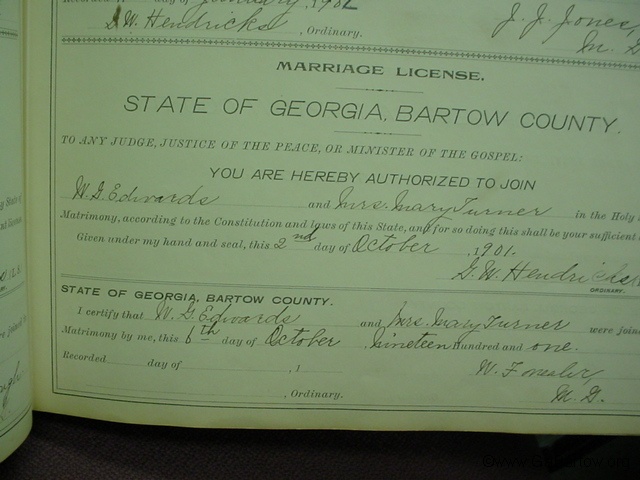 , 1902 J. J. Jones,
G. W. Hendricks , Ordinary. M. G
MARRIAGE LICENSE.
STATE OF GEORGIA, BARTOW COUNTY.
TO ANY JUDGE, JUSTICE OF THE PEACE, OR MINISTER OF THE GOSPEL:
YOU ARE HEREBY AUTHORIZED TO JOIN
W. G. Edwards and Mrs. Mary Turner in the Holy
Matrimony, according to the Constitution and laws of this State, and for so doing this shall be your sufficient
Given under my hand and seal, this 2nd day of October , 1901.
G. W. Hendricks
ORDINARY.
STATE OF GEORGIA, BARTOW COUNTY.
I certify that W. G. Edwards and Mrs. Mary Turner were join
Matrimony by me, this 6th day of October , nineteen hundred and one.
Recorded day of , 1 W.
, Ordinary. M. G.